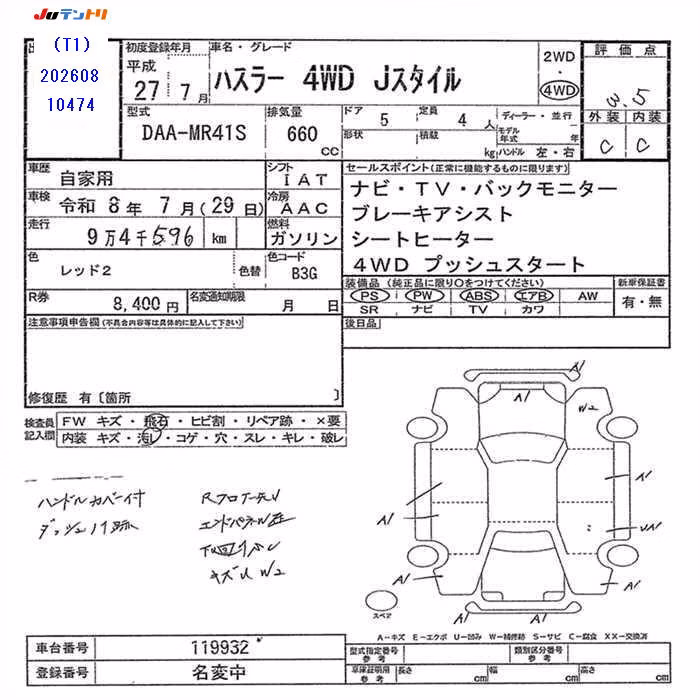 JUテントリ
(T1)
202608
10474
初度登録年月
平成
27 7月
車名・グレード
ハスラー 4WD Jスタイル
2WD
・
4WD
評価点
3.5
外装 内装
C C
型式
DAA-MR41S
排気量
660
cc
ドア 5
定員 4人
形状
積載 kg
ディーラー・並行
モデル年式 年
ハンドル 左・右
車歴
自家用
シフト
IAT
車検
令和 8年 7月(29日)
冷房
AAC
走行
9万4千596 km
燃料
ガソリン
色
レッド2
色替
色コード
B3G
R券
8,400円
名変通知期限
月 日
セールスポイント(正常に機能するものに限ります)
ナビ・TV・バックモニター
ブレーキアシスト
シートヒーター
4WD プッシュスタート
装備品(純正品に限り○をつけてください)
PS PW ABS エアB AW
SR ナビ TV カワ
新車保証書
有・無
後日品
注意事項申告欄(不具合内容等は具体的に記入して下さい)
修復歴 有〔箇所 〕
検査員
記入欄
FW キズ・飛石・ヒビ割・リペア跡・×要
内装 キズ・汚レ・コゲ・穴・スレ・キレ・破レ
ハンドルカバー付
A1
A1
W2
A1
A1
A1
A1
A1
A1
スペア
A-キズ E-エクボ U-凹み W-補修跡 S-サビ C-腐食 XX-交換済
車台番号
119932
登録番号
名変中
型式指定番号
参考
類別区分番号
参考
車庫証明用
参考
長さ cm
幅 cm
高さ cm